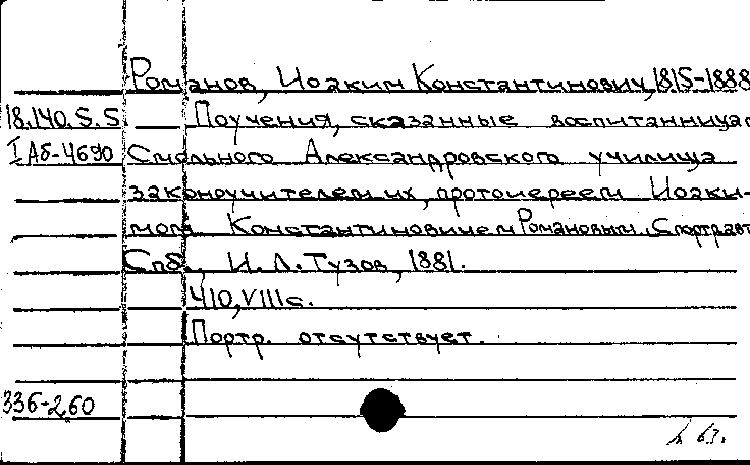 Романов, Иоаким Константинович, 1815-1888
18.140.5.5. Поучения, сказанные воспитанницам
I Аб-4690 Смольного Александровского училища
законоучителем их, протоиереем Иоаки-
мом Константиновичем Романовым. С портр. авт
Спб., И. Л. Тузов, 1881.
410, VIII с.
Портр. отсутствует.
336-2.60
63.